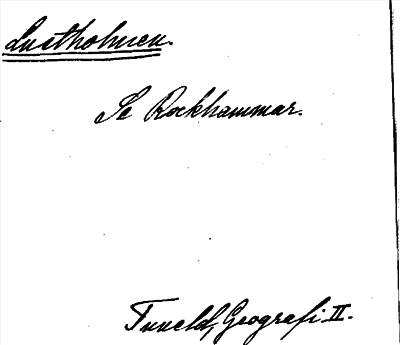 Lustholmen.
Se Rockhammar.
Tuneld, Geografi II.